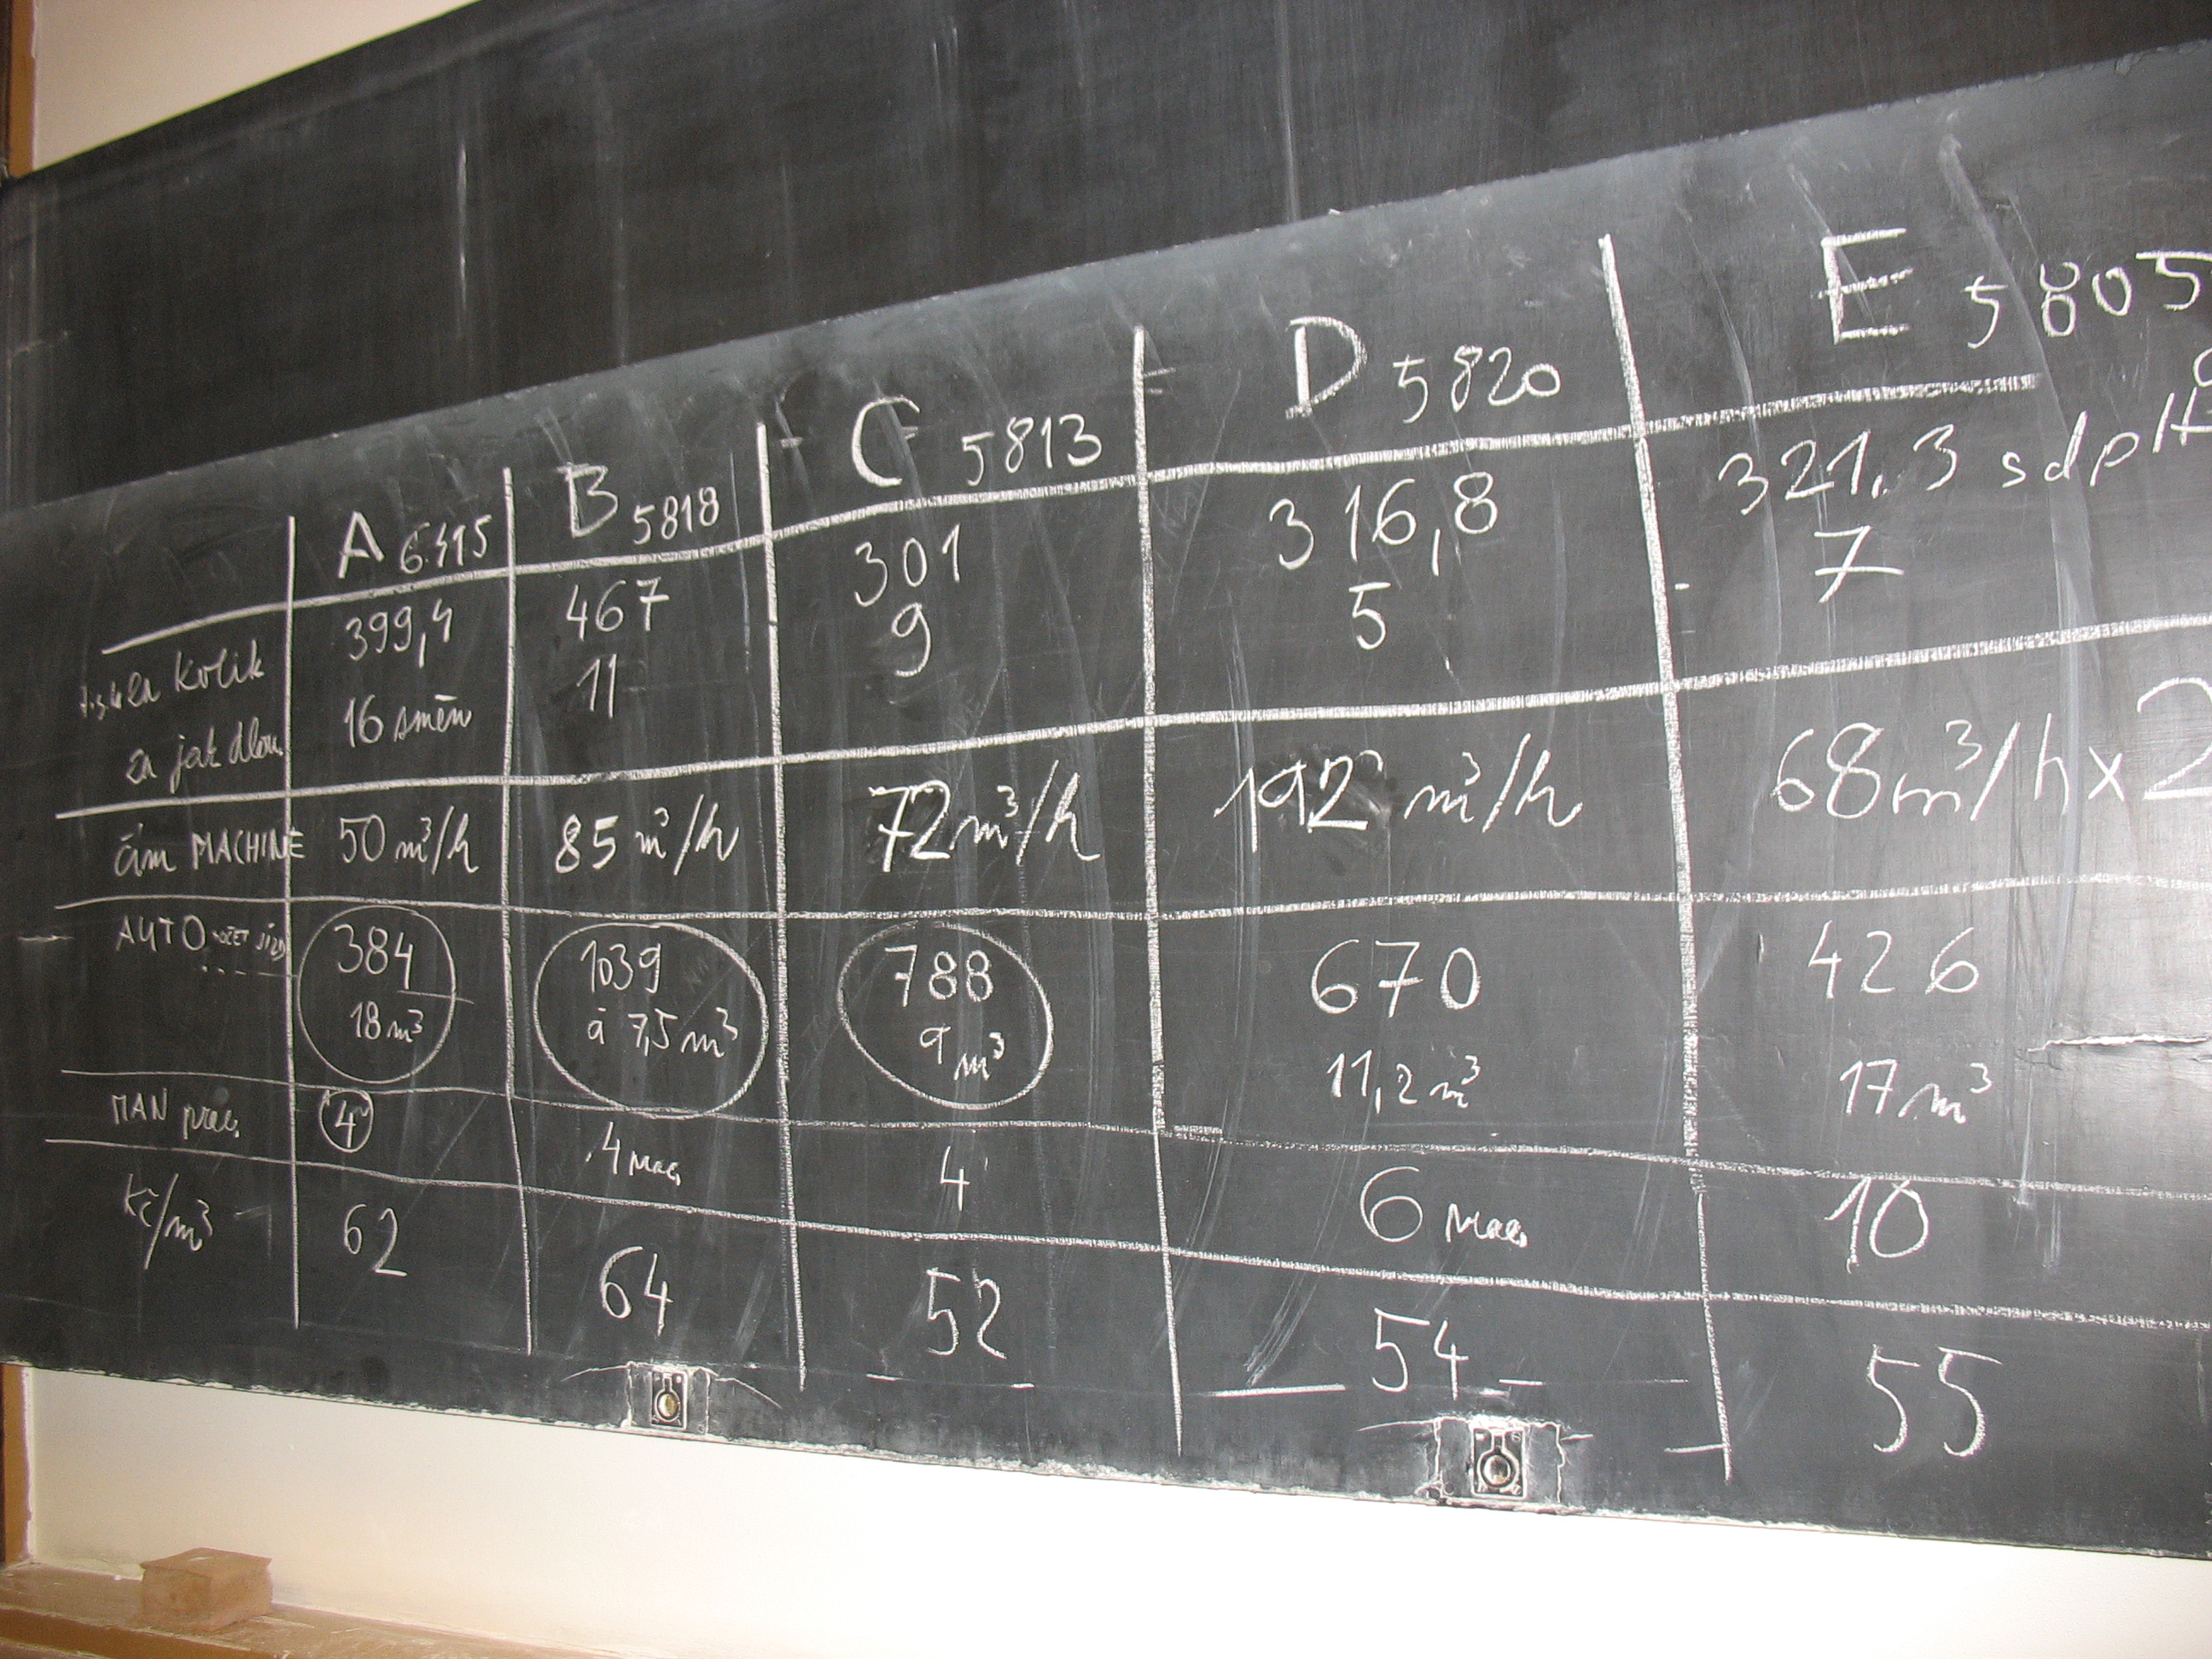 A 6415 B 5818 C 5813 D 5820 E 5805
za kolik 399,4 467 301 316,8 321,3
za jak dlou. 16 směn 11 9 5 7
čím MACHINE 50 m³/h 85 m³/h 72 m³/h 192 m³/h 68 m³/h x 2
AUTO POČET JÍZD 384 1039 788 670 426
18 m³ á 7,5 m³ 9 m³ 11,2 m³ 17 m³
MAN prac. 4 4 prac. 4 6 prac. 10
Kč/m³ 62 64 52 54 55